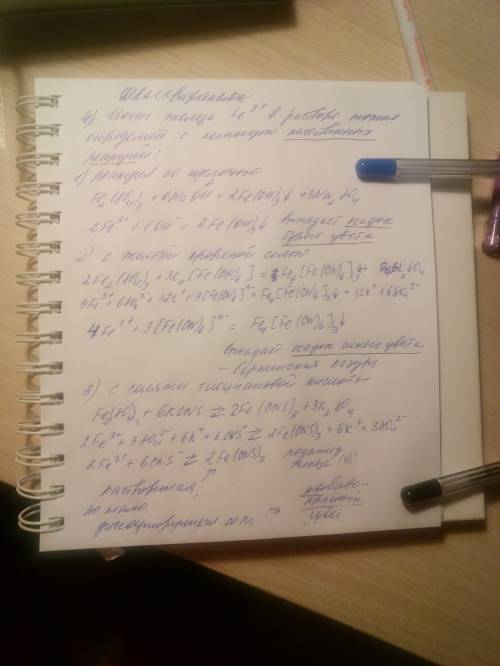 4) Ионы железа Fe³⁺ в растворе можно
определить с помощью качественных
реакций:
1) реакция со щелочью
Fe₂(SO₄)₃ + 6NaOH = 2Fe(OH)₃↓ + 3Na₂SO₄
2Fe³⁺ + 6OH⁻ = 2Fe(OH)₃↓ выпадает осадок
бурого цвета
2) с желтой кровяной солью
2Fe₂(SO₄)₃ + 3K₄[Fe(CN)₆] = Fe₄[Fe(CN)₆]₃↓ + 6K₂SO₄
4Fe³⁺ + 6SO₄²⁻ + 12K⁺ + 3[Fe(CN)₆]⁴⁻ = Fe₄[Fe(CN)₆]₃↓ + 12K⁺ + 6SO₄²⁻
4Fe³⁺ + 3[Fe(CN)₆]⁴⁻ = Fe₄[Fe(CN)₆]₃↓
выпадает осадок синего цвета
- берлинская лазурь
3) с солями тиоциановой кислоты
Fe₂(SO₄)₃ + 6KCNS ⇄ 2Fe(CNS)₃ + 3K₂SO₄
2Fe³⁺ + 3SO₄²⁻ + 6K⁺ + 6CNS⁻ ⇄ 2Fe(CNS)₃ + 6K⁺ + 3SO₄²⁻
2Fe³⁺ + 6CNS⁻ ⇄ 2Fe(CNS)₃ роданид
железа (III)
растворимая, ↑
но мало
диссоциирующая соль ⇒
кроваво-
красный
цвет